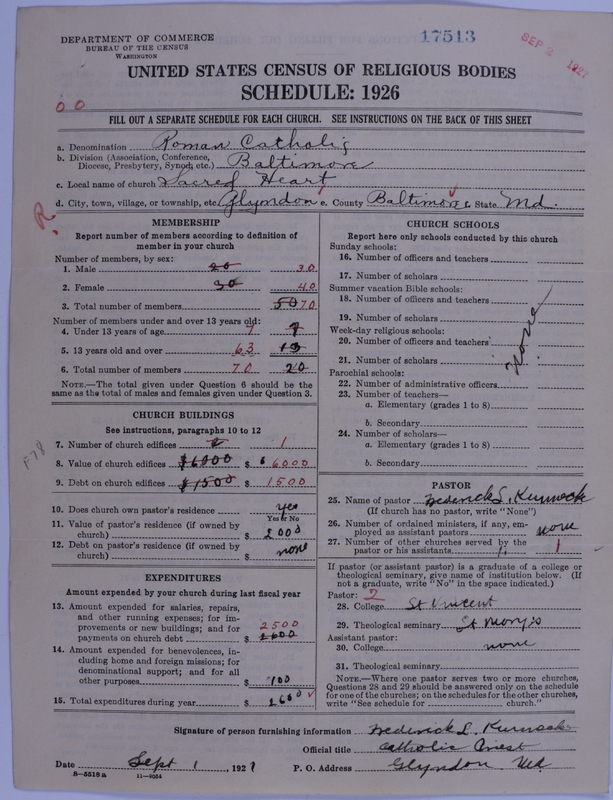 DEPARTMENT OF COMMERCE
BUREAU OF THE CENSUS
WASHINGTON
17513
SEP 2 1927
UNITED STATES CENSUS OF RELIGIOUS BODIES
SCHEDULE: 1926
00
FILL OUT A SEPARATE SCHEDULE FOR EACH CHURCH. SEE INSTRUCTIONS ON THE BACK OF THIS SHEET
a. Denomination Roman Catholic
b. Division (Association, Conference, Diocese, Presbytery, Synod, etc.) Baltimore
c. Local name of church Sacred Heart
d. City, town, village, or township, etc. Glyndon e. County Baltimore f. State Md.
R.
MEMBERSHIP
Report number of members according to definition of
member in your church
Number of members, by sex:
1. Male 20 30
2. Female 30 40
3. Total number of members 50 70
Number of members under and over 13 years old:
4. Under 13 years of age 7 7
5. 13 years old and over 63 13
6. Total number of members 70 20
NOTE.—The total given under Question 6 should be
same as the total of males and females given under Question 3.
CHURCH BUILDINGS
See instructions, paragraphs 10 to 12
7. Number of church edifices 1
8. Value of church edifices $6000 $ 6000
9. Debt on church edifices $1500 $ 1500
10. Does church own pastor's residence yes
Yes or No
11. Value of pastor's residence (if owned by
church) $ 2000
12. Debt on pastor's residence (if owned by
church) $ none
EXPENDITURES
Amount expended by your church during last fiscal year
13. Amount expended for salaries, repairs,
and other running expenses; for im-
provements or new buildings; and for
payments on church debt $ 2500
14. Amount expended for benevolences, in-
cluding home and foreign missions; for
denominational support; and for all
other purposes $ 100
15. Total expenditures during year $ 2600
CHURCH SCHOOLS
Report here only schools conducted by this church
Sunday schools:
16. Number of officers and teachers
17. Number of scholars
Summer vacation Bible schools:
18. Number of officers and teachers
19. Number of scholars
Week-day religious schools:
20. Number of officers and teachers
21. Number of scholars
none
Parochial schools:
22. Number of administrative officers
23. Number of teachers—
a. Elementary (grades 1 to 8)
b. Secondary
24. Number of scholars—
a. Elementary (grades 1 to 8)
b. Secondary
PASTOR
25. Name of pastor Frederick L.
(If church has no pastor, write "None")
26. Number of ordained ministers, if any, em-
ployed as assistant pastors none
27. Number of other churches served by the
pastor or his assistants 1
If pastor (or assistant pastor) is a graduate of a college or
theological seminary, give name of institution below. (If
not a graduate, write "No" in the space indicated.)
Pastor: 2
28. College St Vincent
29. Theological seminary St Marys
Assistant pastor:
30. College none
31. Theological seminary
NOTE.—Where one pastor serves two or more churches,
Questions 28 and 29 should be answered only on the schedule
for one of the churches; on the schedules for the other churches,
write "See schedule for church."
Signature of person furnishing information Frederick L.
Official title Catholic Priest
Date Sept 1, 1927 P. O. Address Glyndon Md.
8—5518 a 11—9064